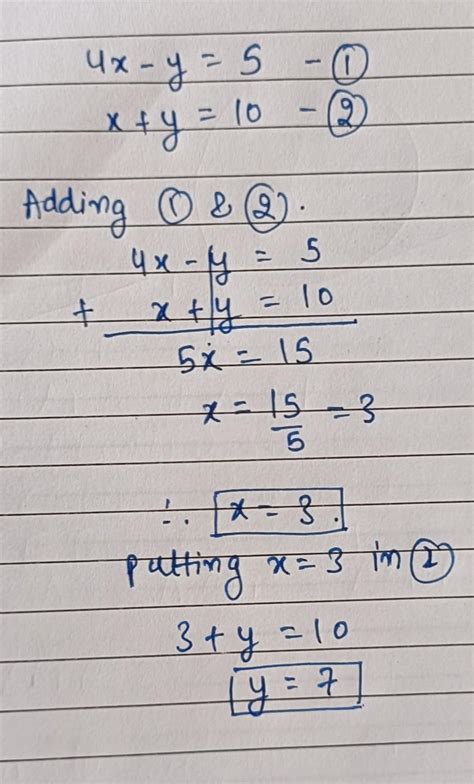 4x - y = 5 - ①
x + y = 10 - ②
Adding ① & ②.
4x - y = 5
+ x + y = 10
5x = 15
x = 15/5 = 3
∴ x = 3.
putting x = 3 in ②
3 + y = 10
y = 7